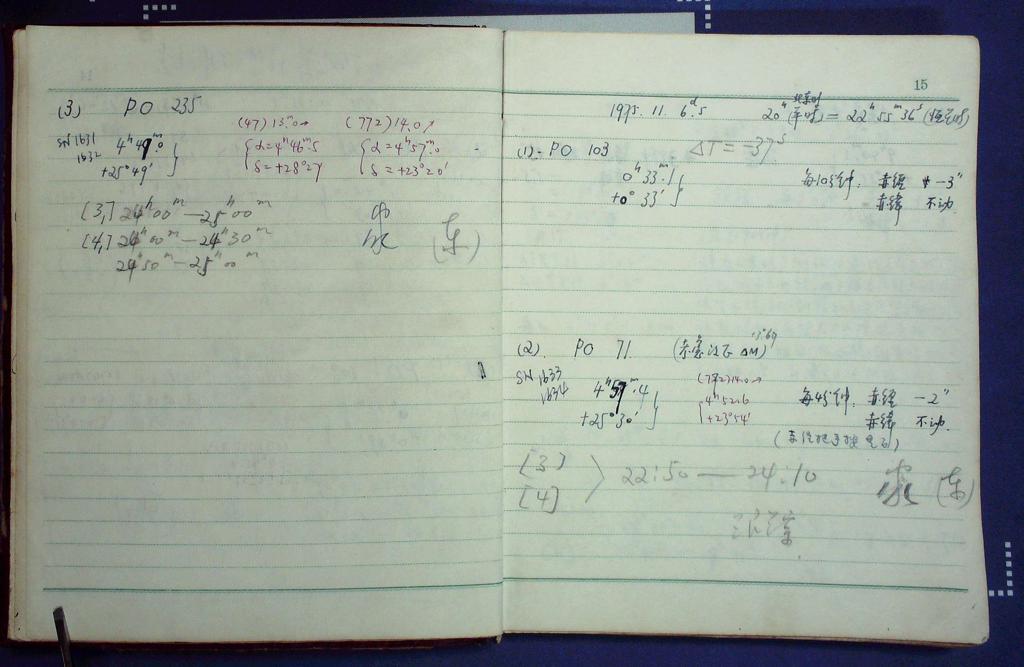 14
(3) PO 235
(47) 13.0 (772) 14.0
SN 1631
1632
4ʰ 49ᵐ.0
+25° 49′
α=4ʰ46ᵐ.5
δ=+28°27′
α=4ʰ57ᵐ.0
δ=+23°20′
[3] 24ʰ00ᵐ—25ʰ00ᵐ
[4] 24ʰ00ᵐ—24ʰ30ᵐ (东)
24ʰ50ᵐ—25ʰ00ᵐ
15
1975. 11. 6ᵈ.5 20ʰ (平时) = 22ʰ 55ᵐ 36ˢ (恒星时)
北京时
(1). PO 103 ΔT = -37ˢ
0ʰ 33ᵐ.1
+0° 33′
每10分钟, 赤经 -3″
赤纬 不动
(2). PO 71.
SN 1633
1634
4ʰ 59ᵐ.4
+25° 30′
(772) 14.0
4ʰ 52.6
+23° 54′
每45分钟, 赤经 -2″
赤纬 不动.
[3]
[4]
22:50 — 24:10 (东)